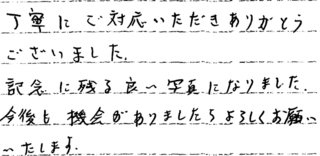 丁寧にご対応いただきありがとう
ございました.
記念に残る良い写真になりました.
今後も機会がありましたらよろしくお願い
いたします.